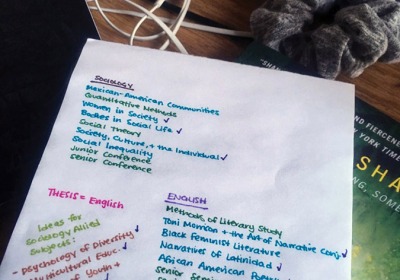 SOCIOLOGY
Mexican-American Communities
Quantitative Methods
Women in Society ✓
Bodies in Social Life ✓
Social Theory
Society, Culture, + the Individual ✓
Social Inequality
Junior Conference
Senior Conference
THESIS = English
Ideas for
Sociology Allied
Subjects:
- Psychology of Diversity
Multicultural Educ.
of Youth +
ENGLISH
Methods of Literary Study
Toni Morrison + the Art of Narrative Conj. ✓
Black Feminist Literature ✓
Narratives of Latinidad ✓
African American
Senior
"SHA
AND FIERCENE
YORK TIME
SHA
NG, SOME